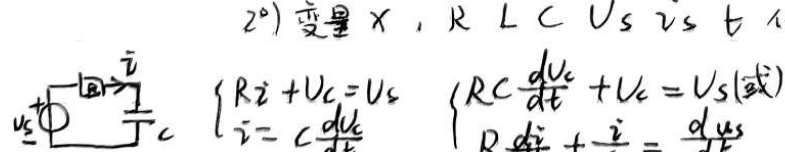 2°) 变量 X , R L C Us is t
i
R
us + - C
{ Ri + Uc = Us
i = C dUc/dt
{ RC dUc/dt + Uc = Us (或)
R di/dt + i/ = dus/dt